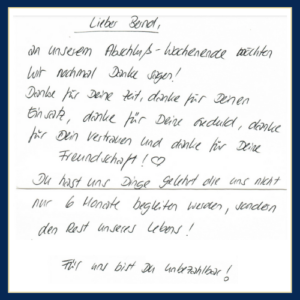 Lieber Bernd,
an unserem Abschluß-Wochenende möchten
wir nochmal Danke sagen!
Danke für Deine Zeit, danke für Deinen
Einsatz, danke für Deine Geduld, danke
für Dein Vertrauen und danke für Deine
Freundschaft! ♡
Du hast uns Dinge gelehrt die uns nicht
nur 6 Monate begleiten werden, sondern
den Rest unseres Lebens!
Für uns bist Du unbezahlbar!